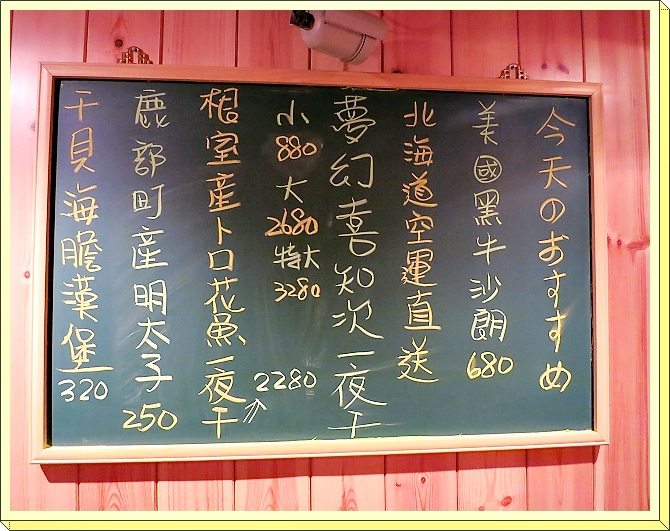 今天のおすすめ
美國黑牛沙朗 680
北海道空運直送
夢幻喜知次一夜干
小 880 大 2680 特大 3280
根室産トロ花魚一夜干 2280
鹿部町産明太子 250
干貝海膽漢堡 320